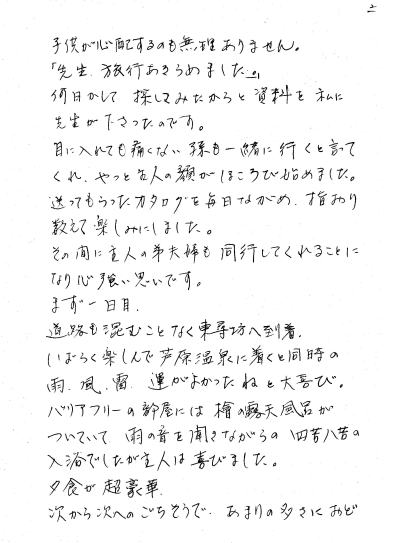 2
子供が心配するのも無理ありません。
「先生、旅行あきらめました。」
何日かして 探してみたからと 資料を 私に
先生が下さったのです。
目に入れても痛くない 孫も一緒に 行くと言って
くれ、やっと主人の顔がほころび始めました。
送ってもらったカタログを毎日ながめ、指おり
数えて楽しみにしました。
その間に主人の弟夫婦も 同行してくれることに
なり心強い思いです。
まず一日目、
道路も混むことなく東尋坊へ到着、
しばらく楽しんで芦原温泉に着くと同時の
雨、風、雷、運がよかったねと大喜び。
バリアフリーの部屋には 檜の露天風呂が
ついていて 雨の音を聞きながらの 四苦八苦の
入浴でしたが主人は喜びました。
夕食が 超豪華、
次から次へのごちそうで、あまりの多さにおど